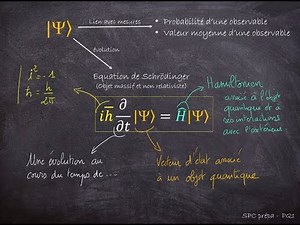 |Ψ⟩
Lien avec mesures
• Probabilité d'une observable
• Valeur moyenne d'une observable
évolution
i² = -1
ħ = h/2π
Equation de Schrödinger
(Objet massif et non relativiste)
Hamiltonien
associé à l'objet
quantique et à
ses interactions
avec l'extérieur
iħ ∂/∂t |Ψ⟩ = Ĥ|Ψ⟩
Une évolution au
cours du temps de ...
Vecteur d'état associé
à un objet quantique
SPC prépa - PSI